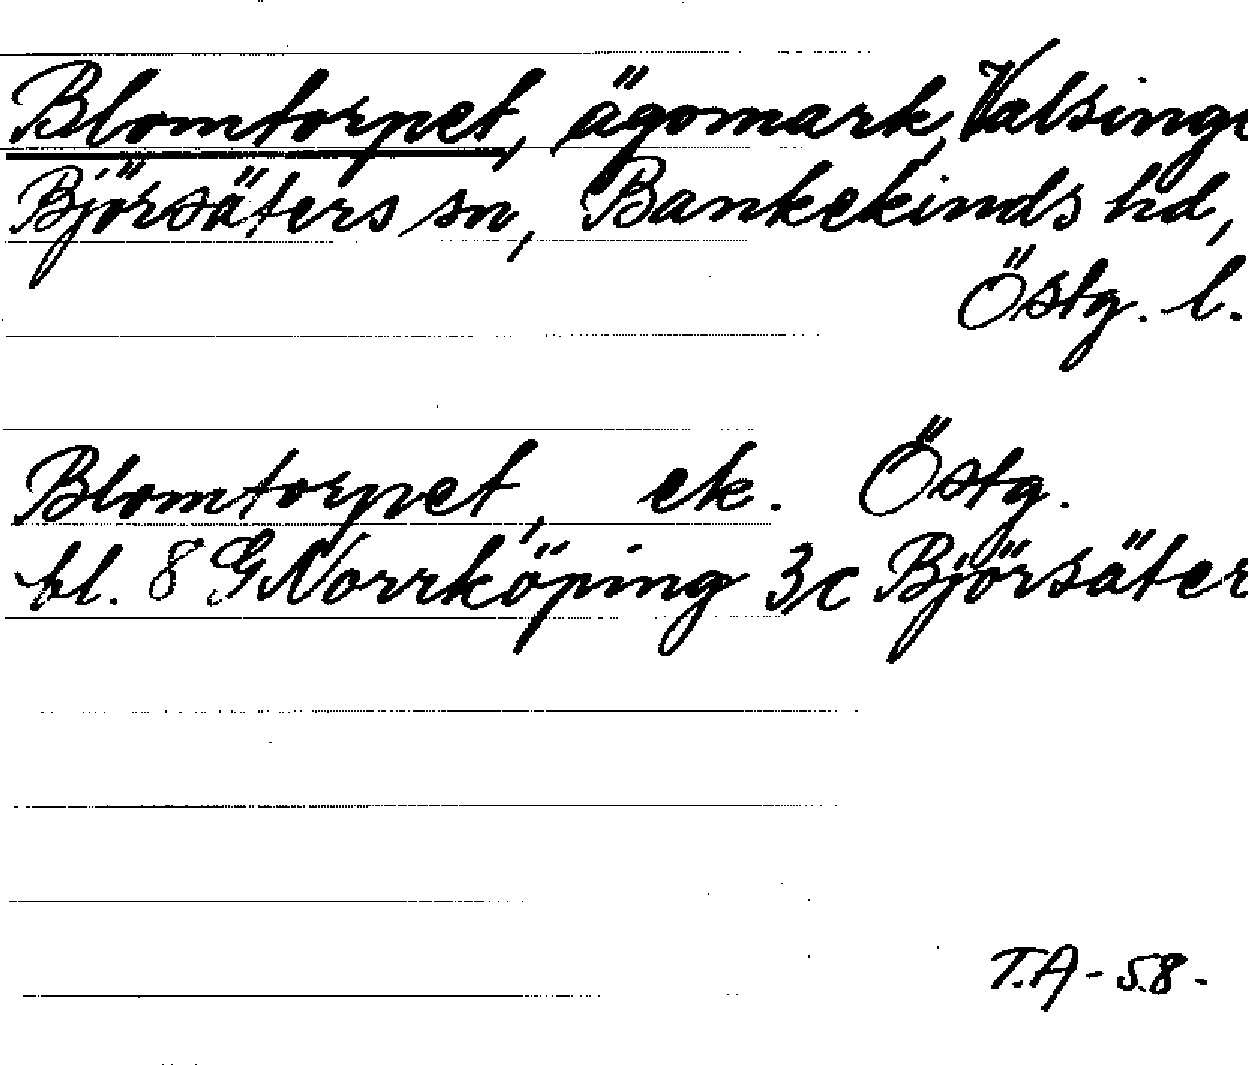 Blomtorpet, ägomark, Valsinge
Björsäters sn, Bankekinds hd,
Östg. l.
Blomtorpet, ek. Östg.
bl. 8 G Norrköping 3c Björsäter
T.A-58-